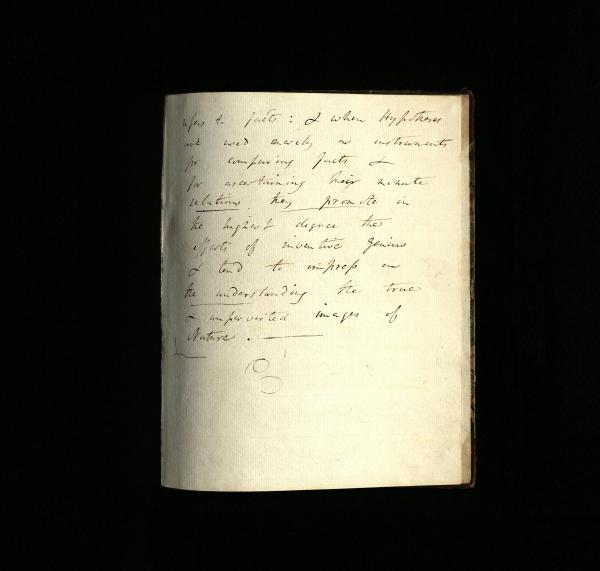 refers to facts : & when Hypotheses
are used merely as instruments
for comparing facts &
for ascertaining their minute
relations they promote in
the highest degree the
effects of inventive Genius
& tend to impress on
the understanding the true
& unperverted images of
Nature . —